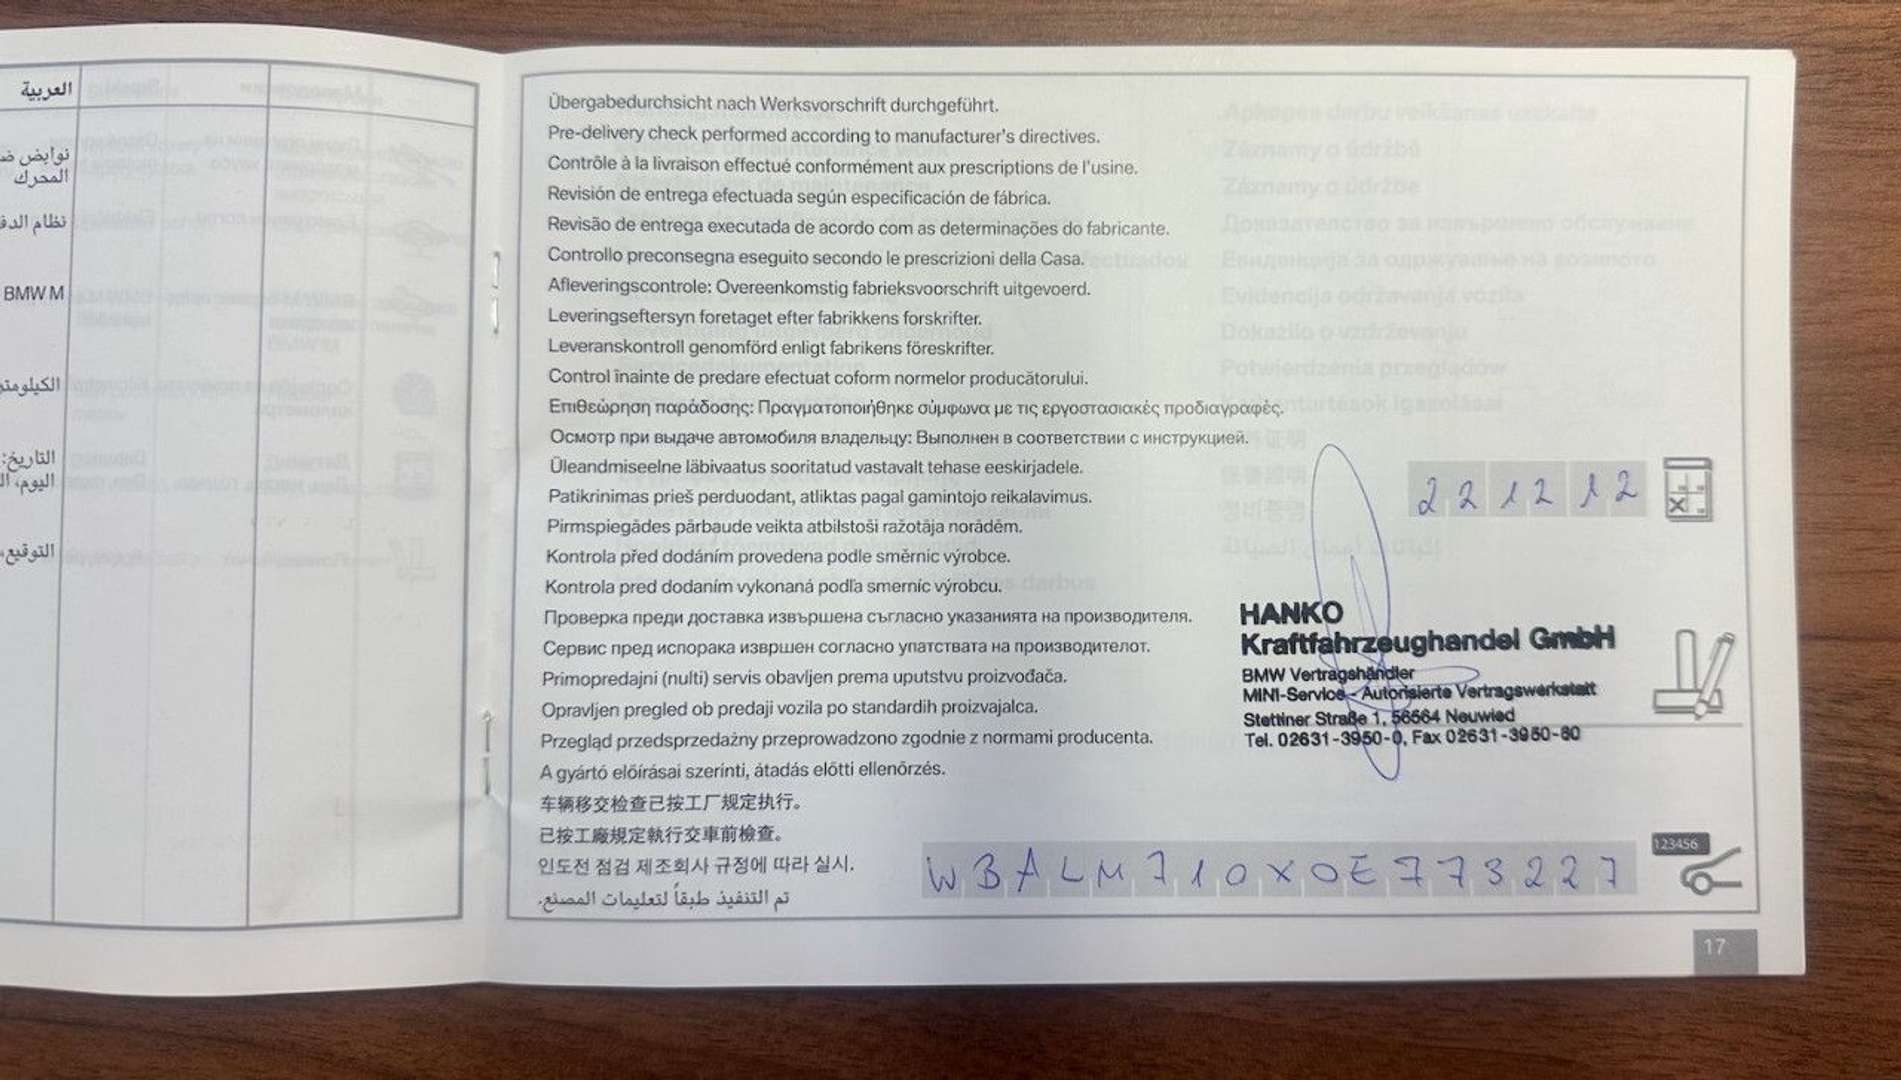 العربية
نوابض
المحرك
نظام
BMW M
التاريخ:
اليوم،
التوقيع،
Übergabedurchsicht nach Werksvorschrift durchgeführt.
Pre-delivery check performed according to manufacturer's directives.
Contrôle à la livraison effectué conformément aux prescriptions de l'usine.
Revisión de entrega efectuada según especificación de fábrica.
Revisão de entrega executada de acordo com as determinações do fabricante.
Controllo preconsegna eseguito secondo le prescrizioni della Casa.
Afleveringscontrole: Overeenkomstig fabrieksvoorschrift uitgevoerd.
Leveringseftersyn foretaget efter fabrikkens forskrifter.
Leveranskontroll genomförd enligt fabrikens föreskrifter.
Control înainte de predare efectuat coform normelor producătorului.
Επιθεώρηση παράδοσης: Πραγματοποιήθηκε σύμφωνα με τις εργοστασιακές προδιαγραφές.
Осмотр при выдаче автомобиля владельцу: Выполнен в соответствии с инструкцией.
Üleandmiseelne läbivaatus sooritatud vastavalt tehase eeskirjadele.
Patikrinimas prieš perduodant, atliktas pagal gamintojo reikalavimus.
Pirmspiegādes pārbaude veikta atbilstoši ražotāja norādēm.
Kontrola před dodáním provedena podle směrnic výrobce.
Kontrola pred dodaním vykonaná podľa smerníc výrobcu.
Проверка преди доставка извършена съгласно указанията на производителя.
Сервис пред испорака извршен согласно упатствата на производителот.
Primopredajni (nulti) servis obavljen prema uputstvu proizvođača.
Opravljen pregled ob predaji vozila po standardih proizvajalca.
Przegląd przedsprzedażny przeprowadzono zgodnie z normami producenta.
A gyártó előírásai szerinti, átadás előtti ellenőrzés.
车辆移交检查已按工厂规定执行。
已按工廠規定執行交車前檢查。
인도전 점검 제조회사 규정에 따라 실시.
تم التنفيذ طبقاً لتعليمات المصنع.
221212
HANKO
Kraftfahrzeughandel GmbH
BMW Vertragshändler
MINI-Service - Autorisierte Vertragswerkstatt
Stettiner Straße 1, 56564 Neuwied
Tel. 02631-3950-0, Fax 02631-3950-60
123456
WBALM710X0E773227
17